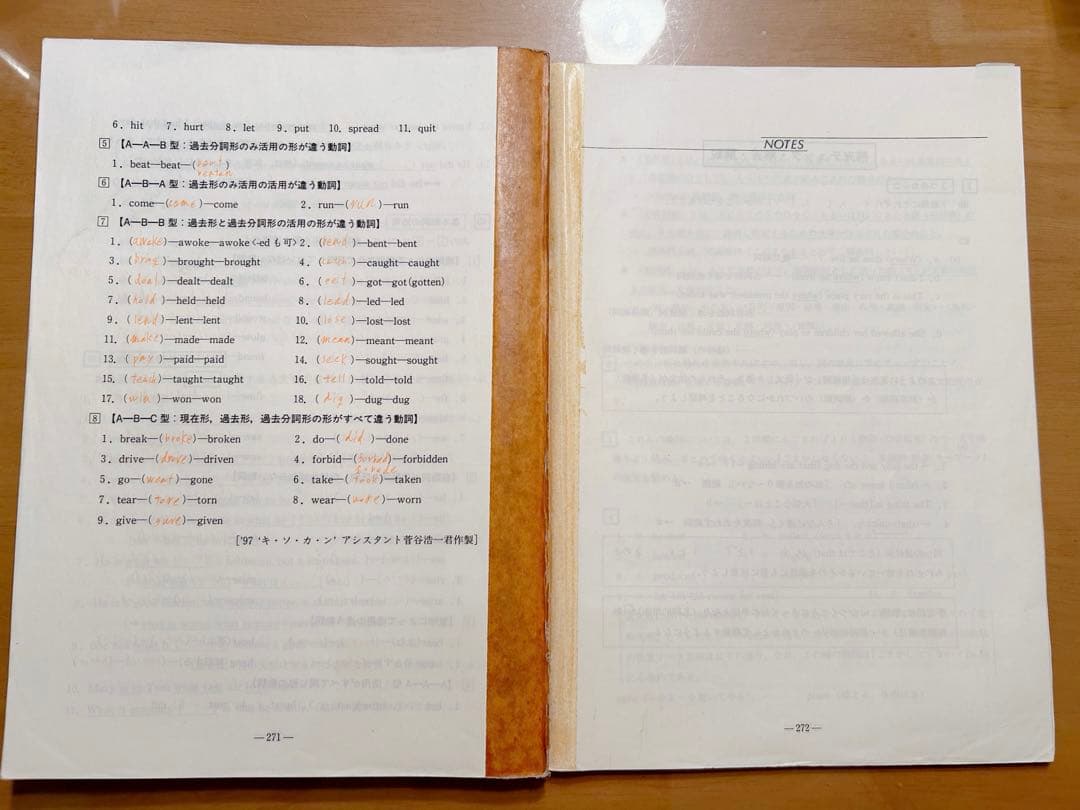 6. hit 7. hurt 8. let 9. put 10. spread 11. quit
5 【A—A—B 型：過去分詞形のみ活用の形が違う動詞】
1. beat—beat—( )
beaten
6 【A—B—A 型：過去形のみ活用の活用が違う動詞】
1. come—(came)—come 2. run—(run)—run
7 【A—B—B 型：過去形と過去分詞形の活用の形が違う動詞】
1. (awake)—awoke—awoke<-ed も可> 2. (bend)—bent—bent
3. (bring)—brought—brought 4. (catch)—caught—caught
5. (deal)—dealt—dealt 6. (get)—got—got(gotten)
7. (hold)—held—held 8. (lead)—led—led
9. (lend)—lent—lent 10. (lose)—lost—lost
11. (make)—made—made 12. (mean)—meant—meant
13. (pay)—paid—paid 14. (seek)—sought—sought
15. (teach)—taught—taught 16. (tell)—told—told
17. (win)—won—won 18. (dig)—dug—dug
8 【A—B—C 型：現在形，過去形，過去分詞形の形がすべて違う動詞】
1. break—(broke)—broken 2. do—(did)—done
3. drive—(drove)—driven 4. forbid—(forbad)—forbidden
forbade
5. go—(went)—gone 6. take—(took)—taken
7. tear—(tore)—torn 8. wear—(wore)—worn
9. give—(gave)—given
['97 ‘キ・ソ・カ・ン’ アシスタント菅谷浩一君作製]
—271—
NOTES
—272—